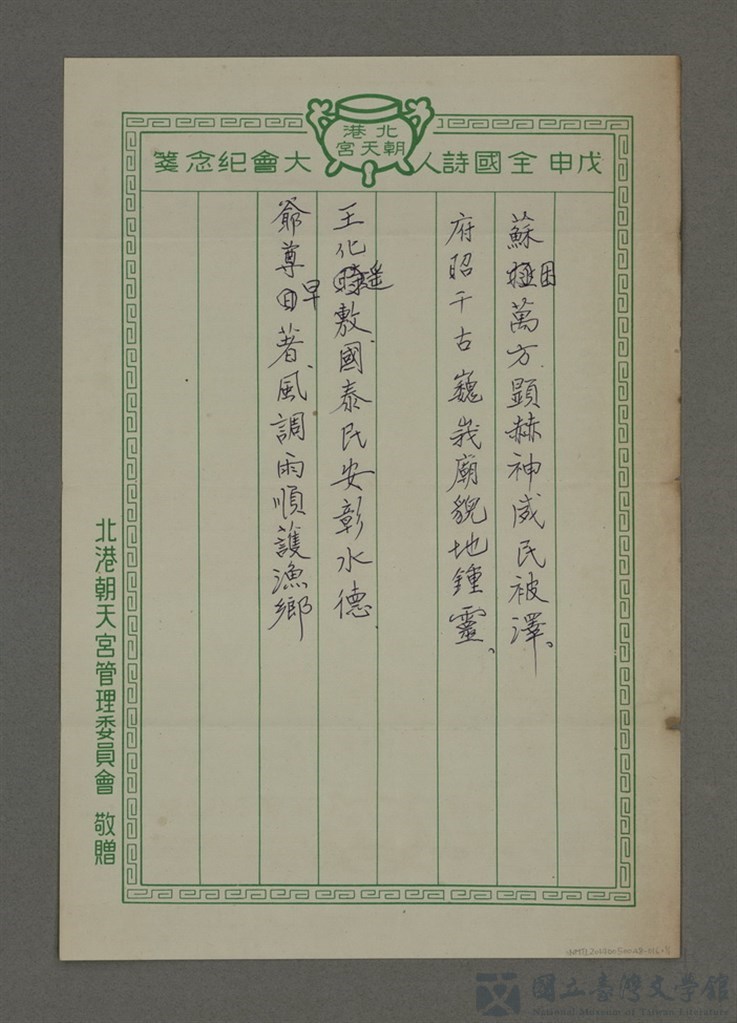 戊申全國詩人大會紀念箋
北港
朝天宮
蘇困萬方顯赫神威民被澤。
府昭千古巍峩廟貌地鍾靈。
王化遙敷國泰民安彰水德.
爺尊早著風調雨順護漁鄉
北港朝天宮管理委員會 敬贈
國立臺灣文學館
National Museum of Taiwan Literature